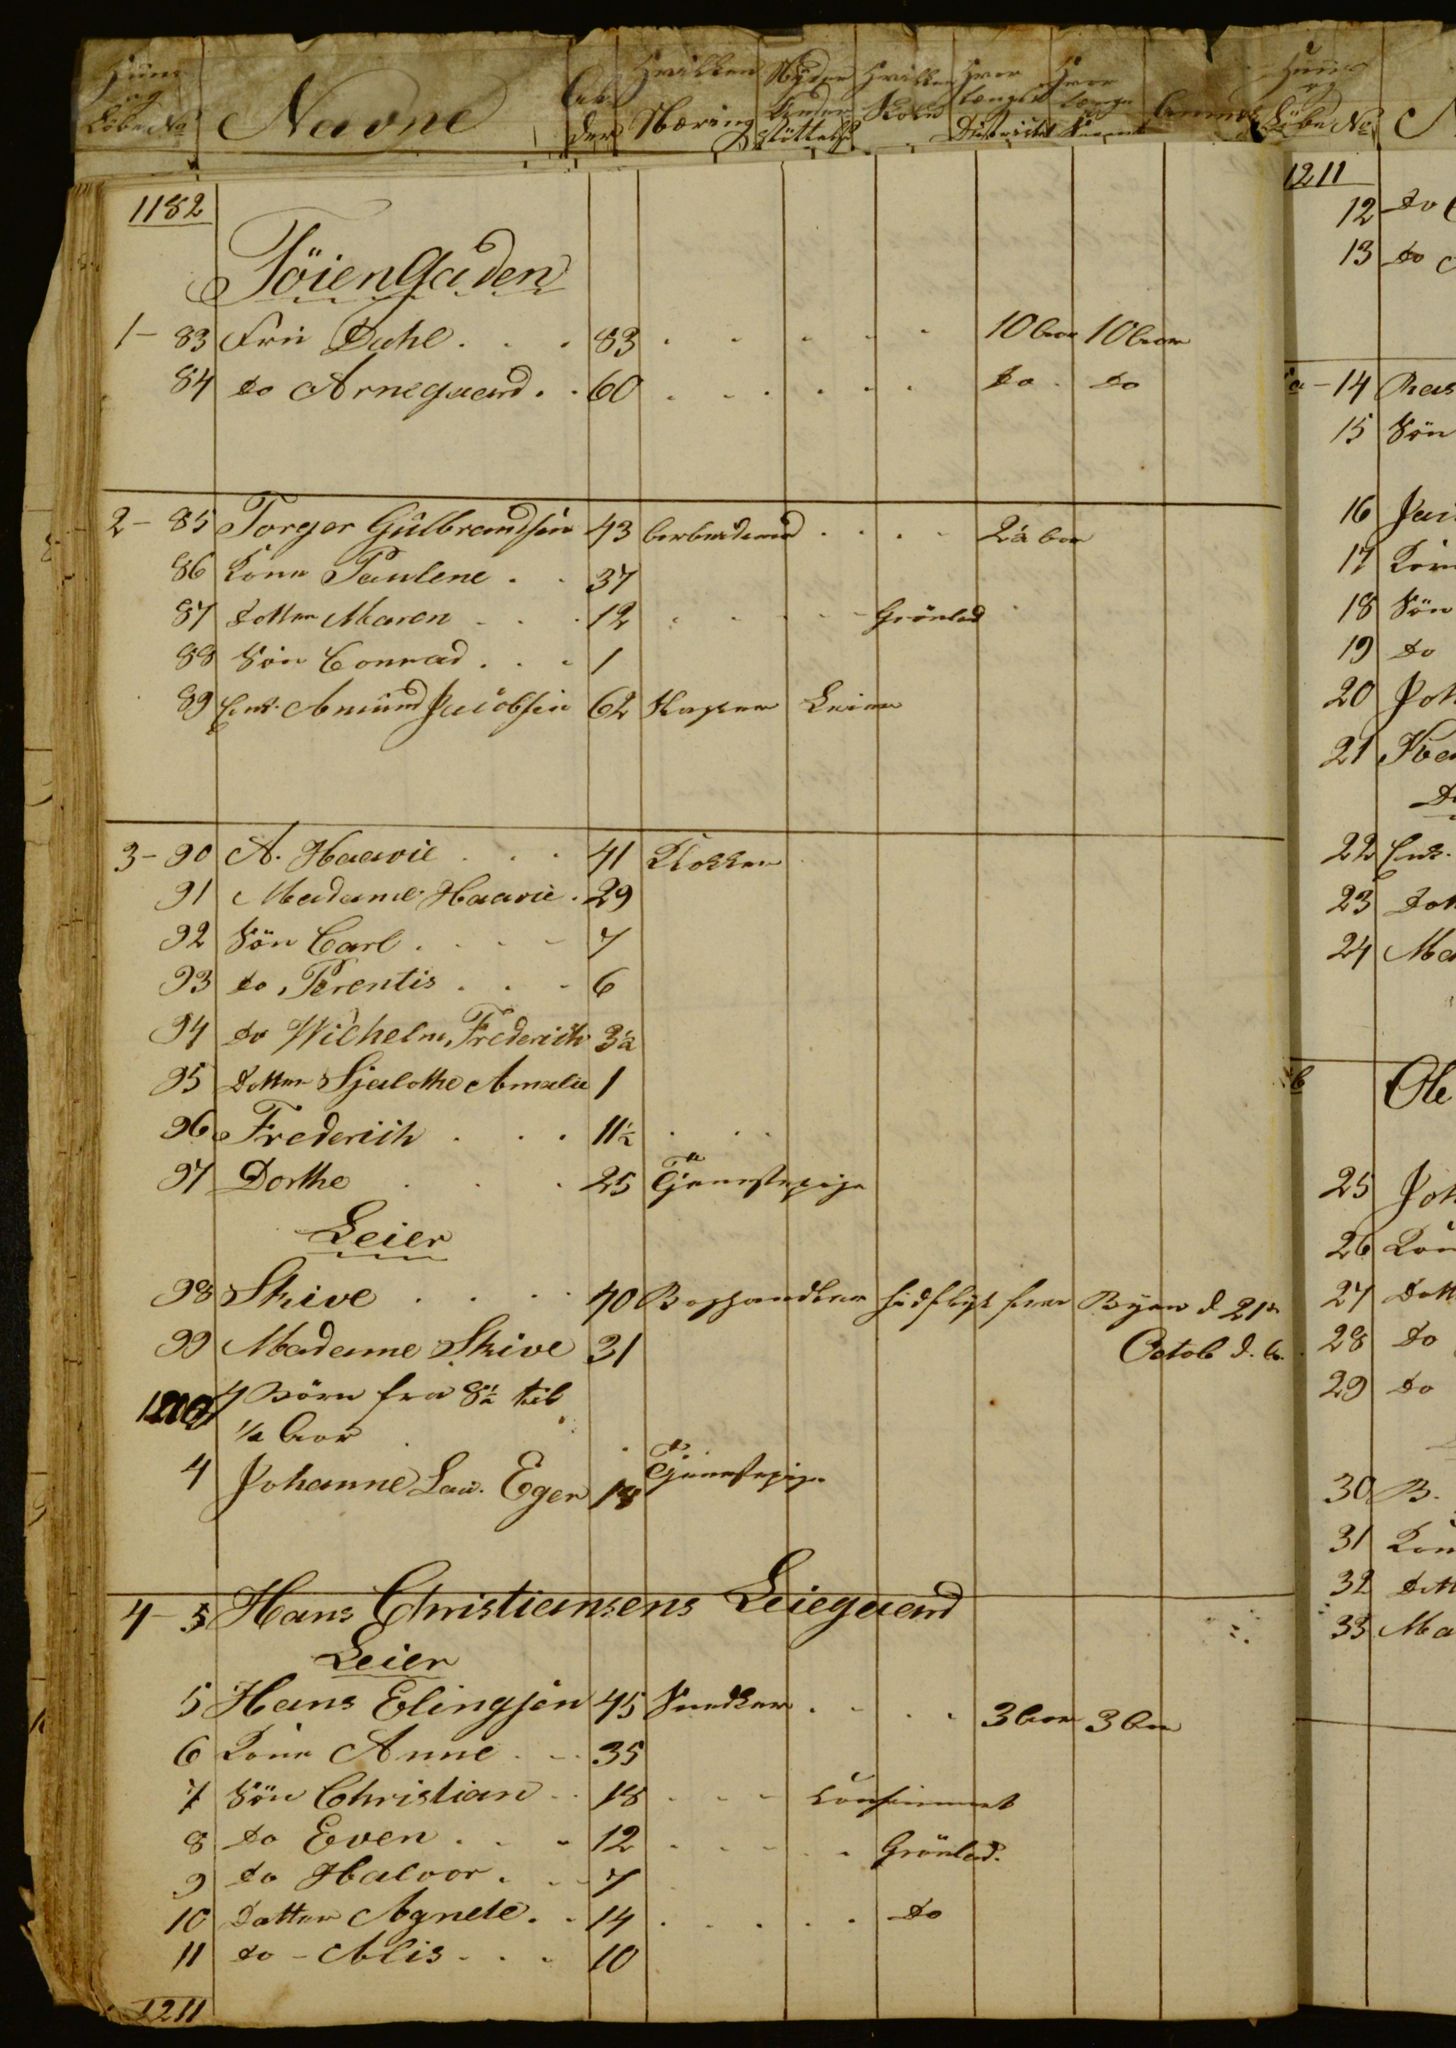 Huus og Löbe No | Navne | Alder | Hvilken Næring | Nyder Understöttelse | Hvilken Skole | Hvor længe i Districtet | Hvor længe | Anm | Huus og Löbe No
1182
Töiengaden
1- 83 Fru Dahl . . . 83 . . . . . 10 Aar 10 Aar
84 do Arnegaard . . 60 . . . . . do . do
2- 85 Torger Gulbrandsen 43 Arbeidsmd . . . . 2½ Aar
86 Kone Paulene . . 37
87 Datter Maren . . . 12 . . . . Grönland
88 Sön Conrad . . . 1
89 Enk. Amund Jacobsen 62 Leier
3- 90 A. Haavie . . . 41 Klokker
91 Madame Haavie . 29
92 Sön Carl . . . . 7
93 do Parentis . . . 6
94 do Wilhelm Frederich 3½
95 Datter Sjalothe Amalie 1
96 Frederich . . . 11½ . . .
97 Dorthe . . . 25 Tjenestepige
Leier
98 Skive . . . . 40 Boghandler hidflyt fra Byen d 21de
99 Madame Skive 31 Octob d. A.
1200 4 Börn fra 8½ til
½ Aar . .
4 Johanne Lau. Eger 18 Tjenestepige
4- 5 Hans Christiansens Leiegaard
Leier
5 Hans Elingsen 45 Snedker . . . . 3 Aar 3 Aar
6 Kone Anne . . . 35
7 Sön Christian . . 18 . . . Confirmert
8 do Even . . . 12 . . . . . Grönld.
9 do Halvor . . . 7
10 Datter Agnete . . 14 . . . . . do
11 do - Alis . . . 10
1211
1211
12 do
13 do
14
15 Sön
16
17 Kone
18 Sön
19 do
20 Joh
21
22 Enk.
23 Dat
24 Ma
Ole
25 Joh
26 Kon
27 Datt
28 do
29 do
30 B.
31 Kon
32 Datt
33 Ma